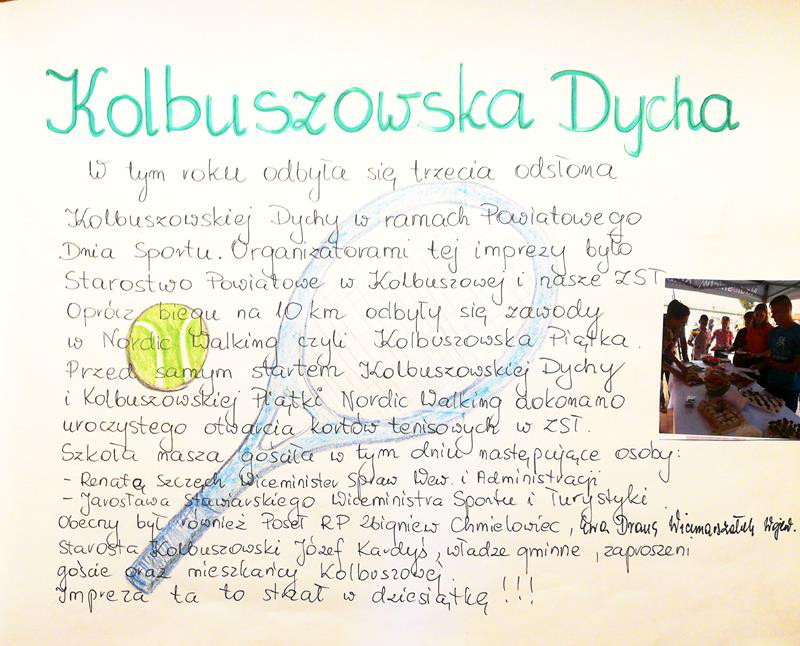 Kolbuszowska Dycha
W tym roku odbyła się trzecia odsłona
Kolbuszowskiej Dychy w ramach Powiatowego
Dnia Sportu. Organizatorami tej imprezy było
Starostwo Powiatowe w Kolbuszowej i nasze ZST.
Oprócz biegu na 10 km odbyły się zawody
w Nordic Walking czyli Kolbuszowska Piątka.
Przed samym startem Kolbuszowskiej Dychy
i Kolbuszowskiej Piątki Nordic Walking dokonano
uroczystego otwarcia kortów tenisowych w ZST.
Szkoła nasza gościła w tym dniu następujące osoby:
- Renatę Szczęch Wiceminister Spraw Wew. i Administracji
- Jarosława Stawiarskiego Wiceministra Sportu i Turystyki.
Obecny był również Poseł RP Zbigniew Chmielowiec, Ewa Draus Wicemarszałek Wojew.
Starosta Kolbuszowski Józef Kardyś, władze gminne, zaproszeni
goście oraz mieszkańcy Kolbuszowej.
Impreza ta to strzał w dziesiątkę !!!